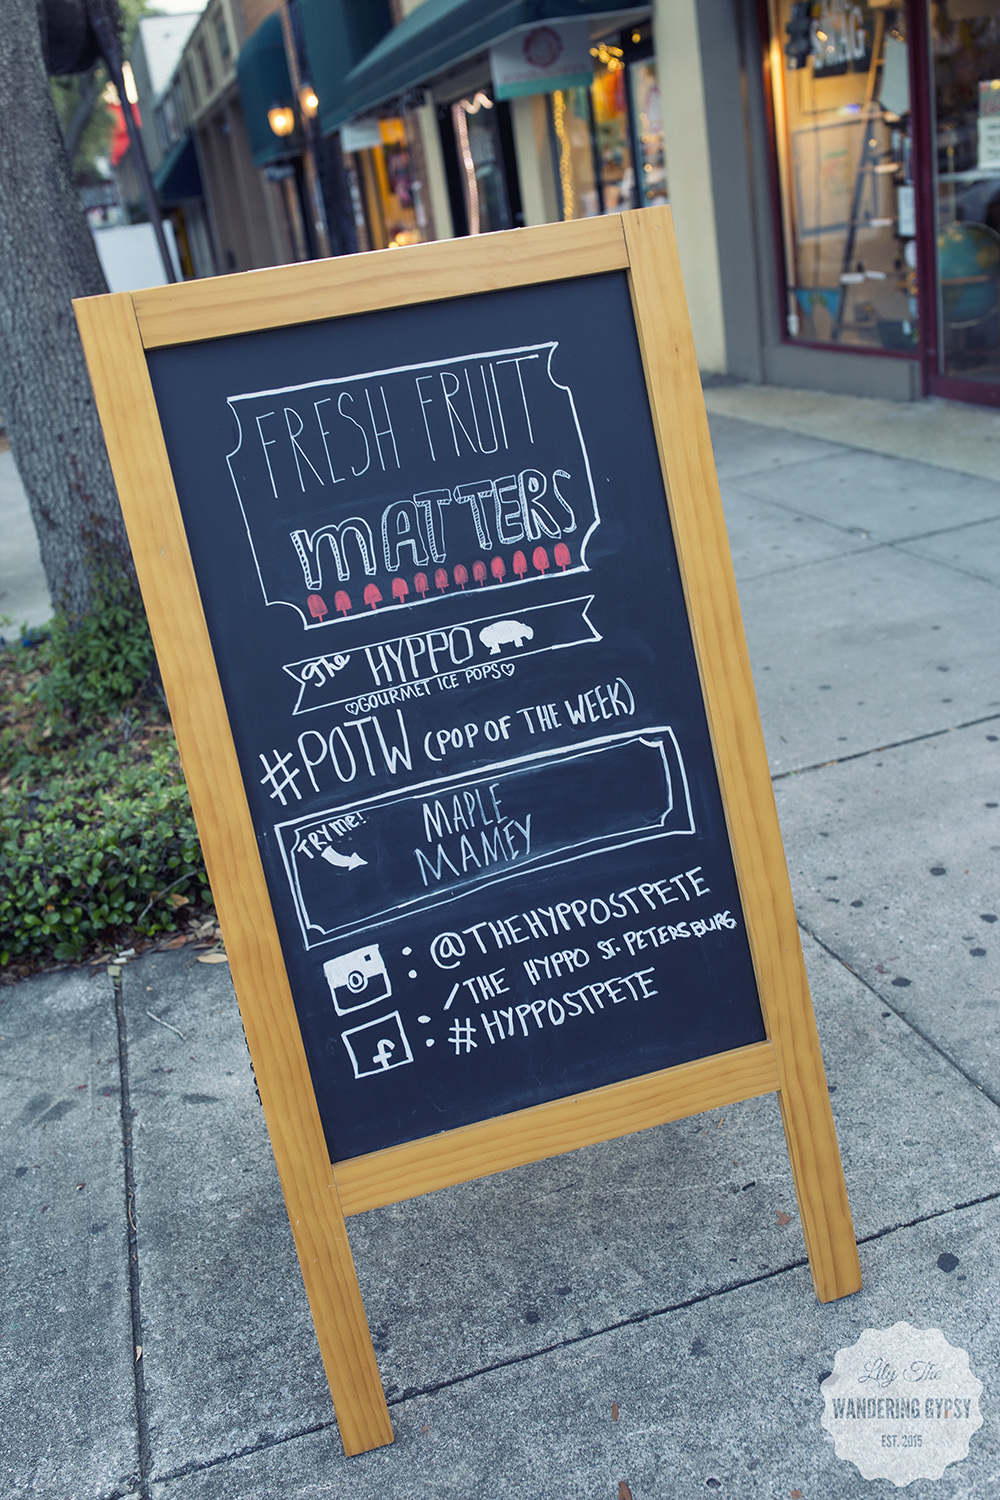 SWAG
FRESH FRUIT
MATTERS
The HYPPO
♡GOURMET ICE POPS♡
#POTW (POP OF THE WEEK)
TRY ME!
MAPLE
MAMEY
: @THEHYPPOSTPETE
/THE HYPPO ST. PETERSBURG
f : #HYPPOSTPETE
Lily The
WANDERING GYPSY
EST. 2015